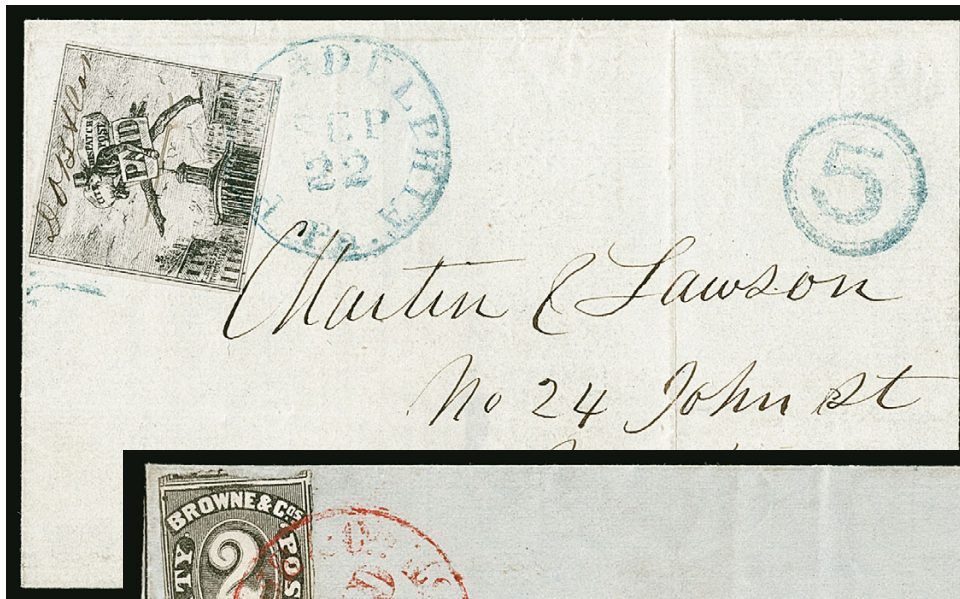 DESPATCH
POST
PAID
ADELPHIA
SEP
22
Pa.
5
Martin & Lawson
No 24 John St
BROWNE & Co's
2